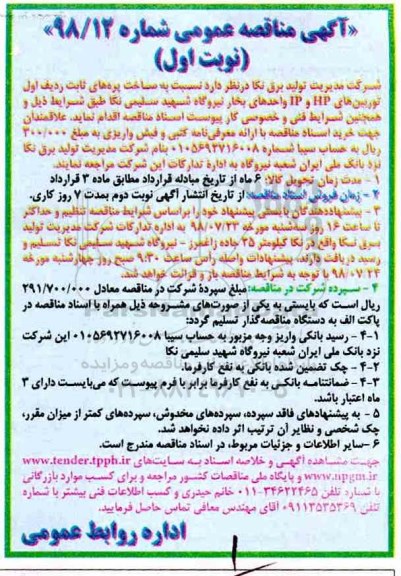 «آگهی مناقصه عمومی شماره ۹۸/۱۲»
(نوبت اول)
شرکت مدیریت تولید برق نکا درنظر دارد نسبت به ساخت پره‌های ثابت ردیف اول
توربین‌های HP و IP واحدهای بخار نیروگاه شهید سلیمی نکا طبق شرایط ذیل و
همچنین شرایط فنی و خصوصی کار پیوست اسناد مناقصه اقدام نماید. علاقمندان
جهت خرید اسناد مناقصه با ارائه معرفی‌نامه کتبی و فیش واریزی به مبلغ ۳۰۰/۰۰۰
ریال به حساب سیبا شماره ۰۱۰۵۶۹۲۷۱۶۰۰۸ بنام شرکت مدیریت تولید برق نکا
نزد بانک ملی ایران شعبه نیروگاه به اداره تدارکات این شرکت مراجعه نمایند.
۱- مدت زمان تحویل کالا: ۶ ماه از تاریخ مبادله قرارداد مطابق ماده ۳ قرارداد
۲- زمان فروش اسناد مناقصه: از تاریخ انتشار آگهی نوبت دوم بمدت ۷ روز کاری.
۳- پیشنهاددهندگان باید پیشنهاد خود را براساس شرایط مناقصه تنظیم و حداکثر
تا ساعت ۱۶ روز سه‌شنبه مورخه ۹۸/۰۷/۲۳ به اداره تدارکات شرکت مدیریت تولید
برق نکا واقع در نکا کیلومتر ۲۵ جاده زاغمرز - نیروگاه شهید سلیمی نکا تسلیم و
رسید دریافت دارند. پیشنهادات واصله رأس ساعت ۹:۳۰ صبح روز چهارشنبه مورخه
۹۸/۰۷/۲۴ با توجه به شرایط مناقصه باز و قرائت خواهد شد.
۴- سپرده شرکت در مناقصه: مبلغ سپرده شرکت در مناقصه معادل ۲۹۱/۷۰۰/۰۰۰
ریال است که بایستی به یکی از صورت‌های مشروحه ذیل همراه با اسناد مناقصه در
پاکت الف به دستگاه مناقصه‌گذار تسلیم گردد:
۴-۱- رسید بانکی واریز وجه مزبور به حساب سیبا ۰۱۰۵۶۹۲۷۱۶۰۰۸ این شرکت
نزد بانک ملی ایران شعبه نیروگاه شهید سلیمی نکا
۴-۲- چک تضمین شده بانکی به نفع کارفرما.
۴-۳- ضمانتنامه بانکی به نفع کارفرما برابر با فرم پیوست که می‌بایست دارای ۳
ماه اعتبار باشد.
۵- به پیشنهادهای فاقد سپرده، سپرده‌های مخدوش، سپرده‌های کمتر از میزان مقرر،
چک شخصی و نظایر آن ترتیب اثر داده نخواهد شد.
۶- سایر اطلاعات و جزئیات مربوط، در اسناد مناقصه مندرج است.
جهت مشاهده آگهی و خلاصه اسناد به سایت‌های www.tender.tpph.ir
www.npgm.ir و پایگاه ملی مناقصات کشور مراجعه و برای کسب موارد بازرگانی
با شماره تلفن ۳۴۶۲۲۴۶۵-۰۱۱ خانم حیدری و کسب اطلاعات فنی بیشتر با شماره
تلفن ۰۹۱۱۳۵۳۵۳۶۹ آقای مهندس معافی تماس حاصل فرمایید.
اداره روابط عمومی